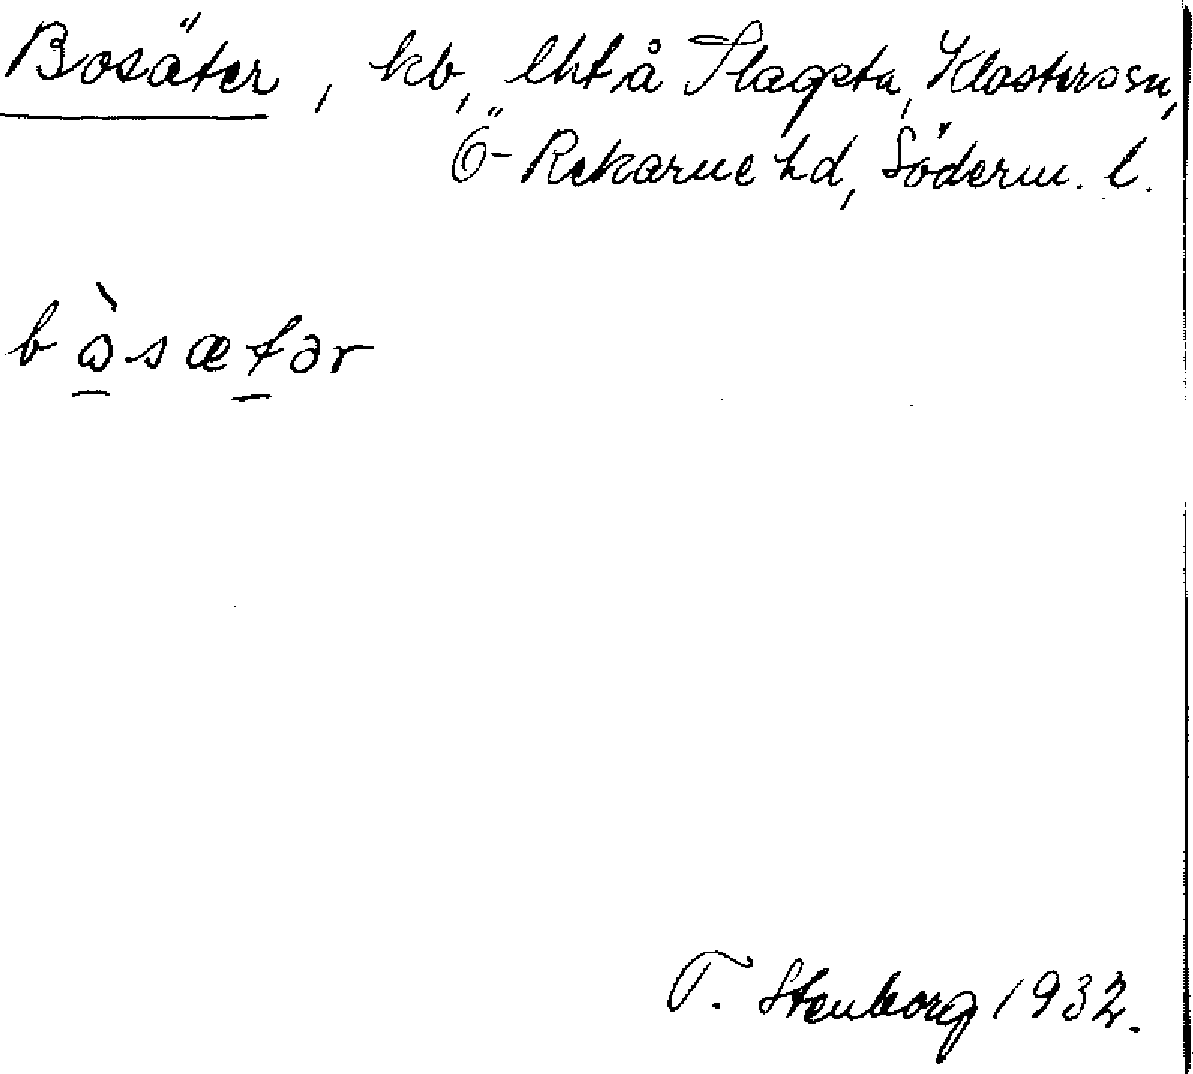 Bosäter, kb, lht å Slagsta, Klosters sn,
Ö-Rekarne hd, Söderm. l.
bɷ̀sætər
T. Stenborg 1932.